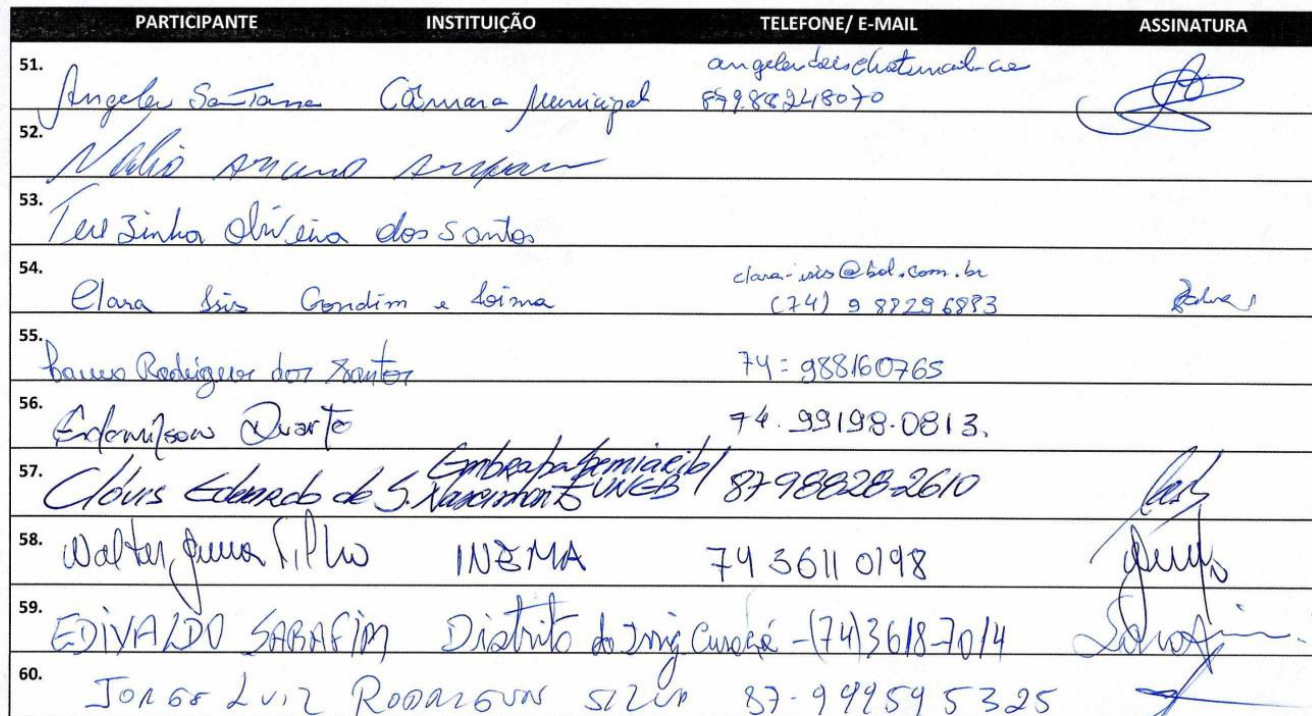 PARTICIPANTE INSTITUIÇÃO TELEFONE/ E-MAIL ASSINATURA
51. Angela Santana Câmara Municipal 87988248070
52.
53. Terezinha Oliveira dos Santos
54. Clara Isis Gondim e Loima clara-isis@bol.com.br
(74) 9 88296883
55. Rodrigues dos Santos 74 = 988160765
56. Edemilson Duarte 74. 99198-0813.
57. Clóvis Eduardo de S. Nascimento Embrapa Semiarido/ UNEB 87-98828-2610
58. Walter Filho INEMA 74 3611 0198
59. EDIVALDO SARAFIM Distrito de Irrig Curaçá -(74)3618-7014
60. JORGE LUIZ RODRIGUES SILVA 87-999595325